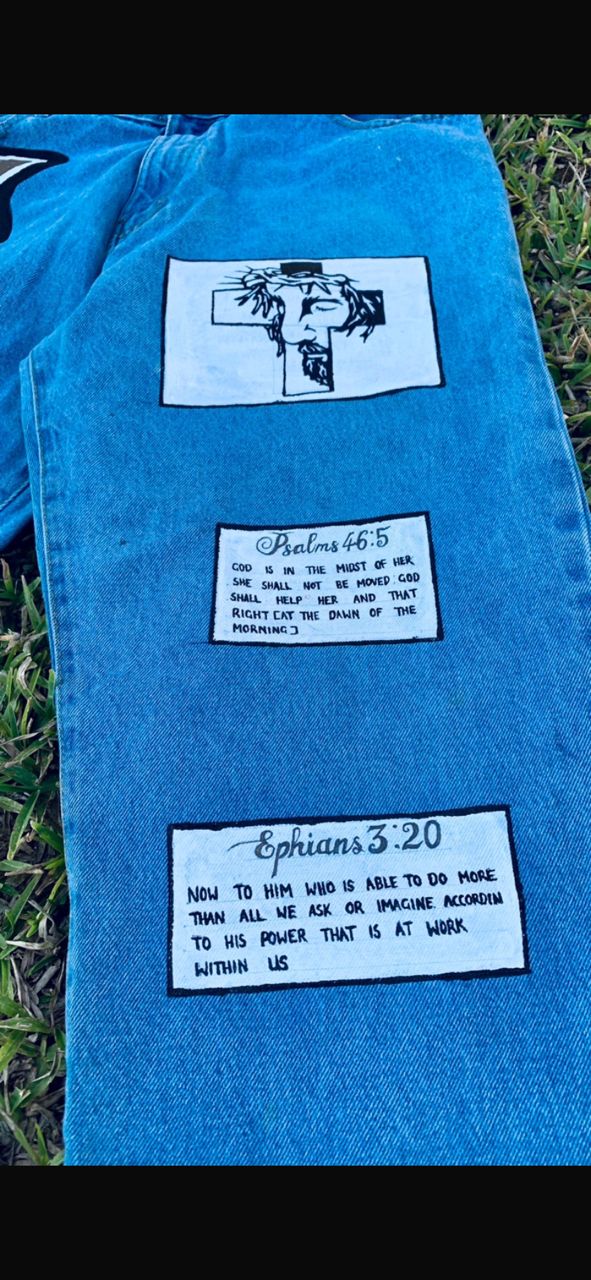 Psalms 46:5
GOD IS IN THE MIDST OF HER
SHE SHALL NOT BE MOVED: GOD
SHALL HELP HER AND THAT
RIGHT [AT THE DAWN OF THE
MORNING]
Ephians 3:20
NOW TO HIM WHO IS ABLE TO DO MORE
THAN ALL WE ASK OR IMAGINE, ACCORDIN
TO HIS POWER THAT IS AT WORK
WITHIN US